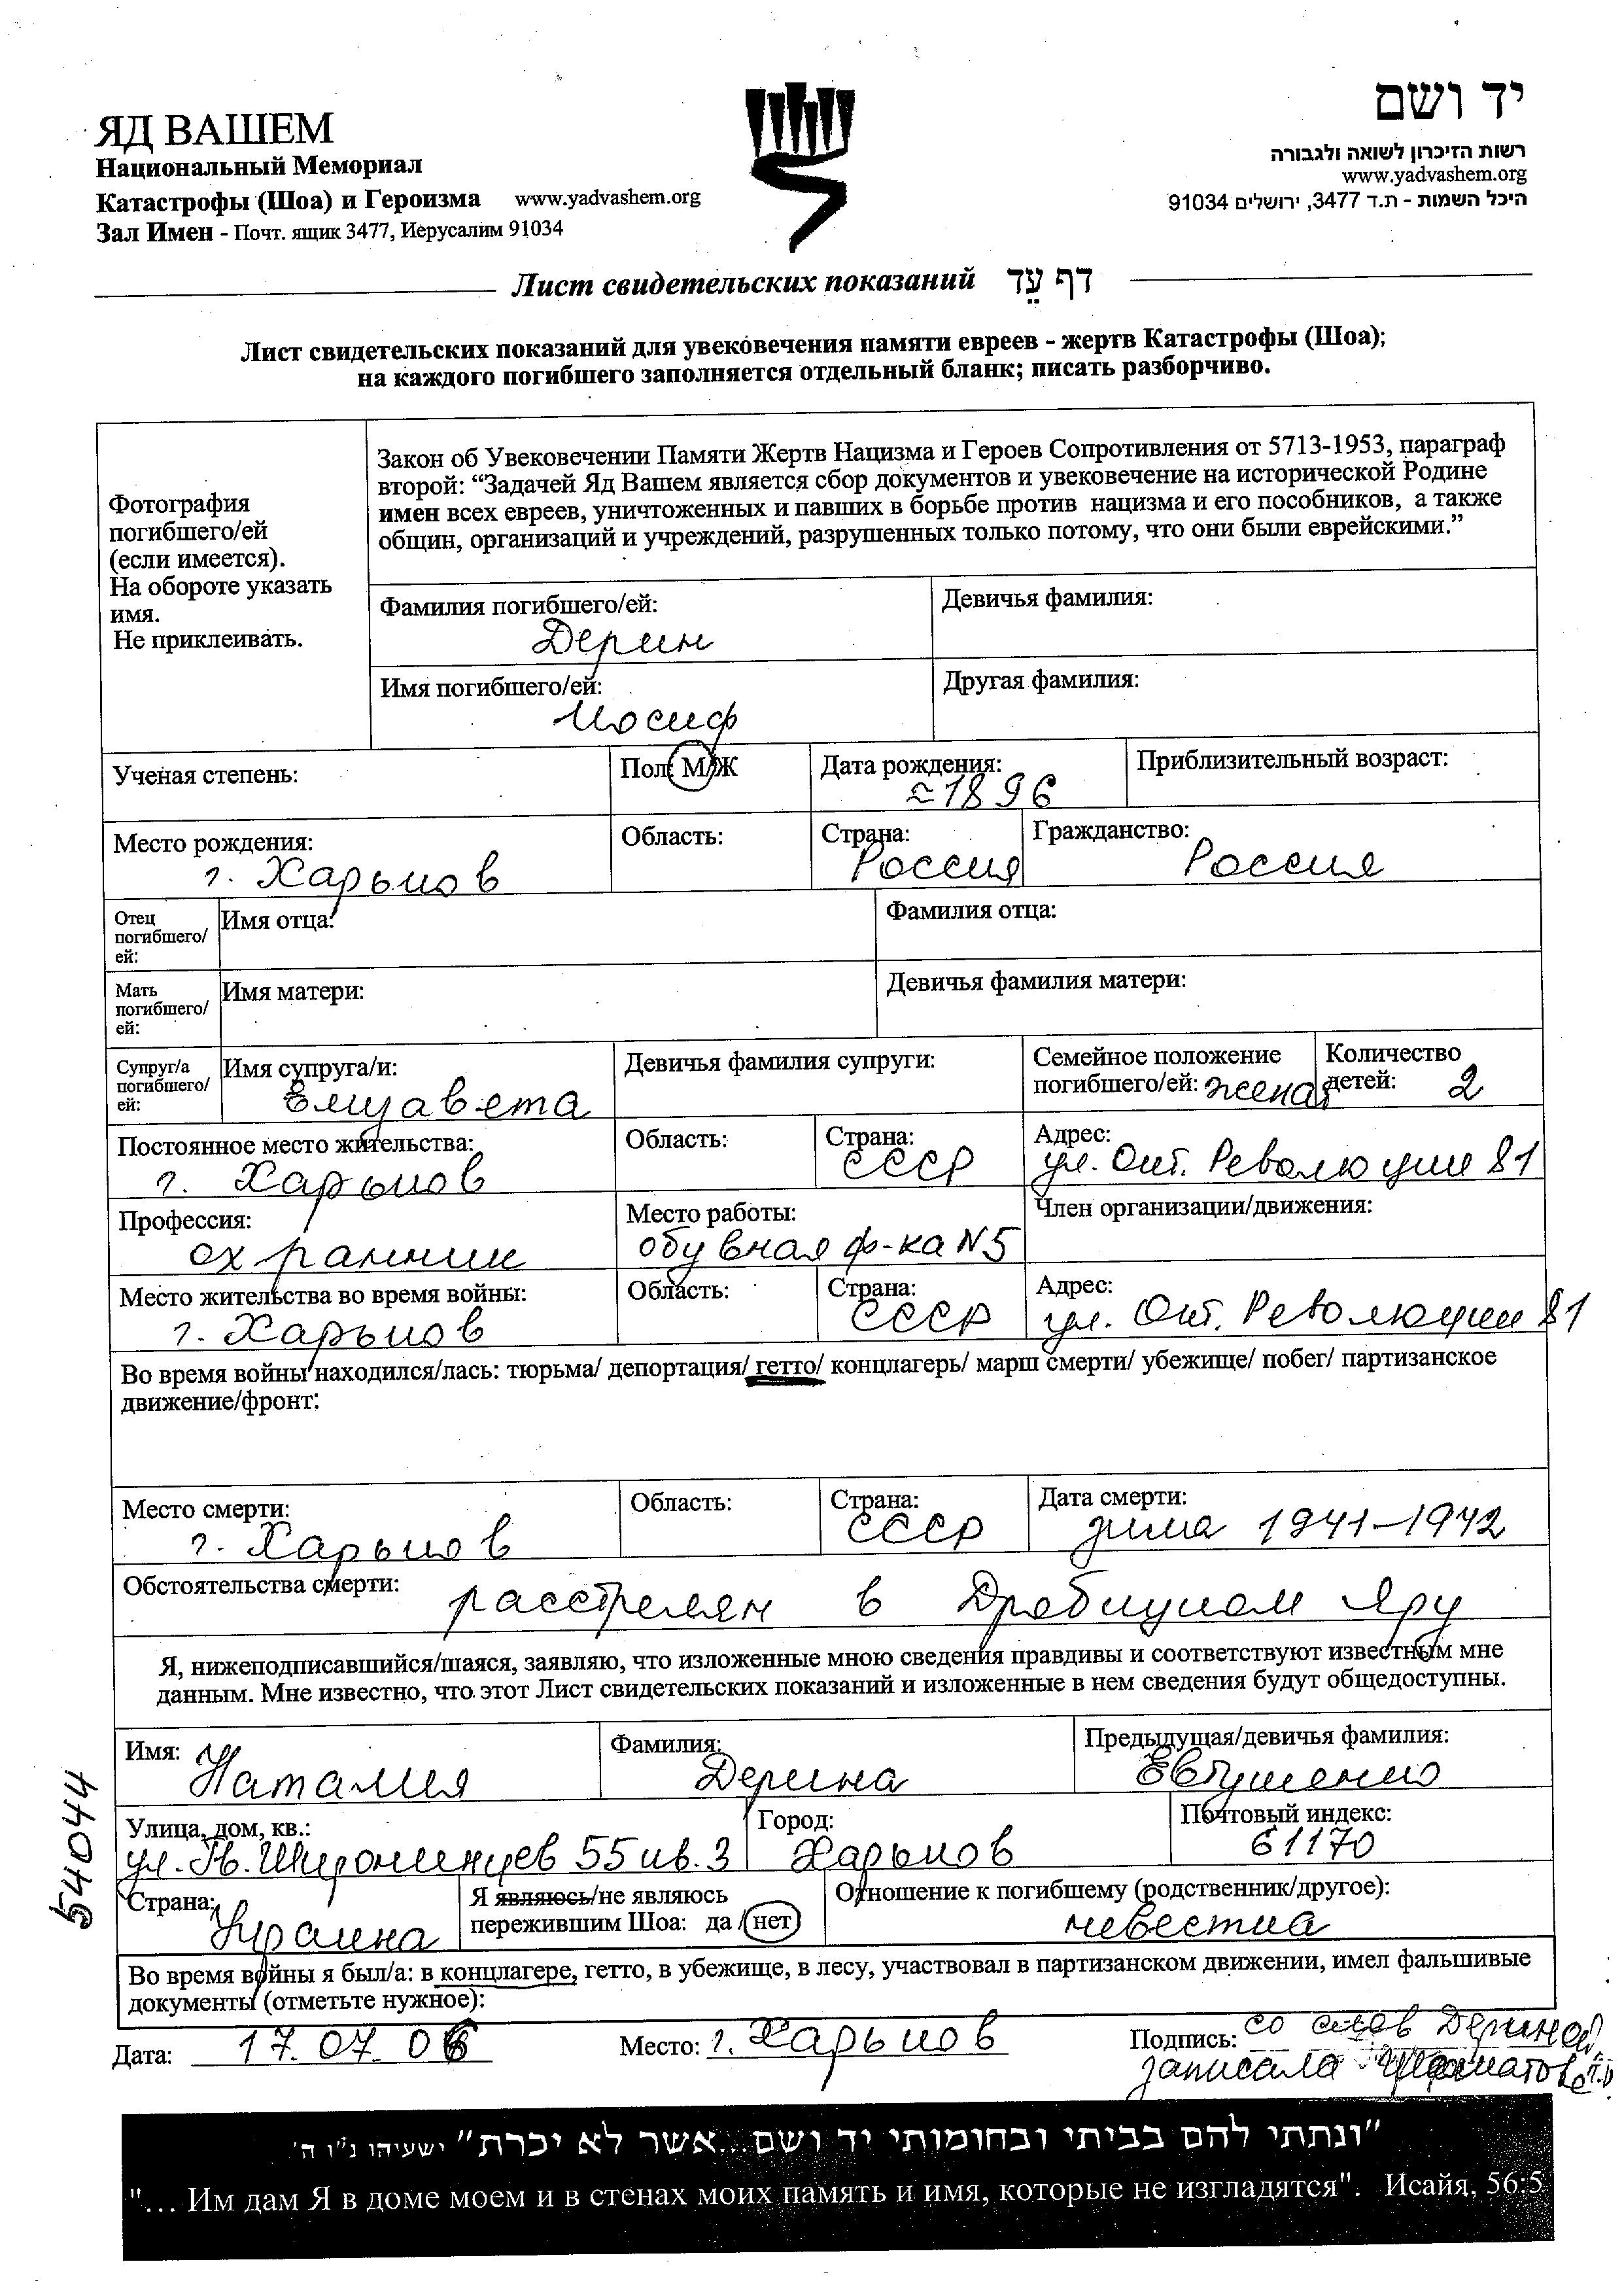 ЯД ВАШЕМ
Национальный Мемориал
Катастрофы (Шоа) и Героизма www.yadvashem.org
Зал Имен - Почт. ящик 3477, Иерусалим 91034
יד ושם
רשות הזיכרון לשואה ולגבורה
www.yadvashem.org
היכל השמות - ת.ד 3477, ירושלים 91034
Лист свидетельских показаний דף עֵד
Лист свидетельских показаний для увековечения памяти евреев - жертв Катастрофы (Шоа);
на каждого погибшего заполняется отдельный бланк; писать разборчиво.
Фотография
погибшего/ей
(если имеется).
На обороте указать
имя.
Не приклеивать.
Закон об Увековечении Памяти Жертв Нацизма и Героев Сопротивления от 5713-1953, параграф
второй: “Задачей Яд Вашем является сбор документов и увековечение на исторической Родине
имен всех евреев, уничтоженных и павших в борьбе против нацизма и его пособников, а также
общин, организаций и учреждений, разрушенных только потому, что они были еврейскими.”
Фамилия погибшего/ей:
Дерин
Девичья фамилия:
Имя погибшего/ей:
Иосиф
Другая фамилия:
Ученая степень:
Пол: М/Ж
Дата рождения:
≈1896
Приблизительный возраст:
Место рождения:
г. Харьков
Область:
Страна:
Россия
Гражданство:
Россия
Отец
погибшего/
ей:
Имя отца:
Фамилия отца:
Мать
погибшего/
ей:
Имя матери:
Девичья фамилия матери:
Супруг/а
погибшего/
ей:
Имя супруга/и:
Елизавета
Девичья фамилия супруги:
Семейное положение
погибшего/ей: женат
Количество
детей: 2
Постоянное место жительства:
г. Харьков
Область:
Страна:
СССР
Адрес:
ул. Окт. Революции 81
Профессия:
охранник
Место работы:
обувная ф-ка N5
Член организации/движения:
Место жительства во время войны:
г. Харьков
Область:
Страна:
СССР
Адрес:
ул. Окт. Революции 81
Во время войны находился/лась: тюрьма/ депортация/ гетто/ концлагерь/ марш смерти/ убежище/ побег/ партизанское
движение/фронт:
Место смерти:
г. Харьков
Область:
Страна:
СССР
Дата смерти:
зима 1941-1942
Обстоятельства смерти: расстрелян в Дробицком Яру
Я, нижеподписавшийся/шаяся, заявляю, что изложенные мною сведения правдивы и соответствуют известным мне
данным. Мне известно, что этот Лист свидетельских показаний и изложенные в нем сведения будут общедоступны.
Имя:
Наталия
Фамилия:
Дерина
Предыдущая/девичья фамилия:
Евтушенко
Улица, дом, кв.:
ул. Гв. Широнинцев 55 кв. 3
Город:
Харьков
Почтовый индекс:
61170
Страна:
Украина
Я являюсь/не являюсь
пережившим Шоа: да / нет
Отношение к погибшему (родственник/другое):
невестка
Во время войны я был/а: в концлагере, гетто, в убежище, в лесу, участвовал в партизанском движении, имел фальшивые
документы (отметьте нужное):
Дата: 17.07.06
Место: г. Харьков
Подпись: со слов Дериной
записала
54044
"ונתתי להם בביתי ובחומותי יד ושם...אשר לא יכרת" ישעיהו נ"ו ה'
"... Им дам Я в доме моем и в стенах моих память и имя, которые не изгладятся". Исайя, 56:5